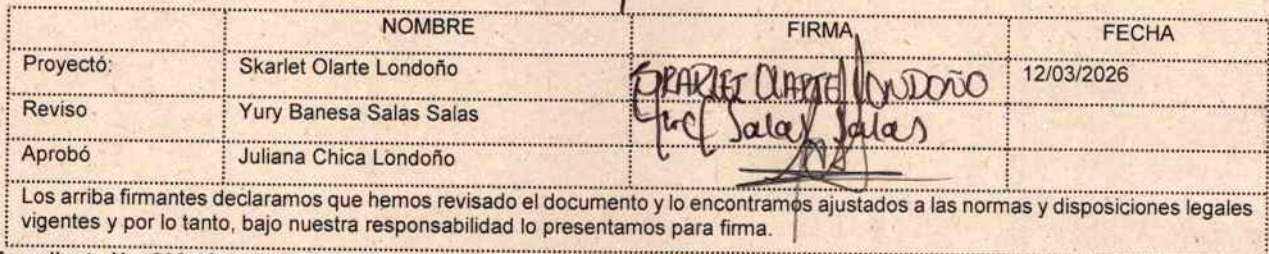 NOMBRE FIRMA FECHA
Proyectó: Skarlet Olarte Londoño SKARLET OLARTE LONDOÑO 12/03/2026
Reviso Yury Banesa Salas Salas Salas Salas
Aprobó Juliana Chica Londoño
Los arriba firmantes declaramos que hemos revisado el documento y lo encontramos ajustados a las normas y disposiciones legales
vigentes y por lo tanto, bajo nuestra responsabilidad lo presentamos para firma.